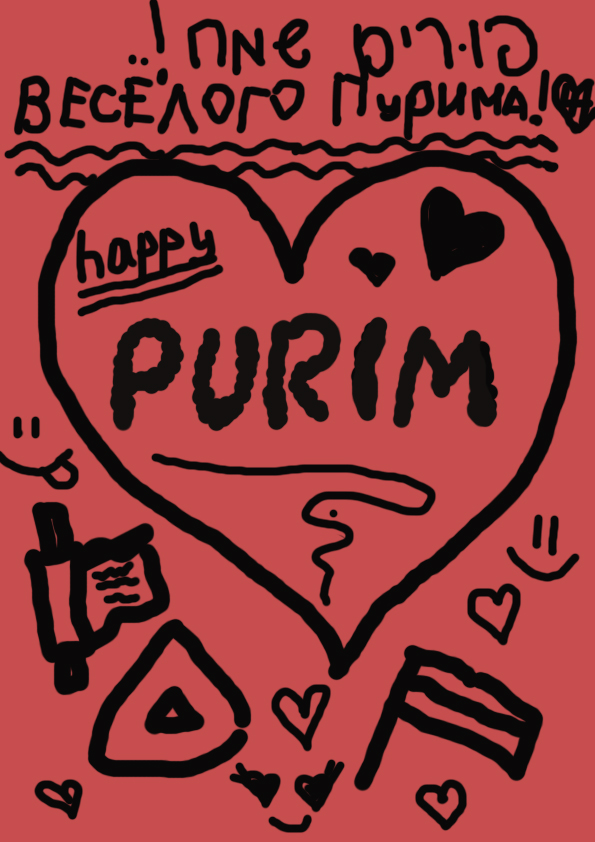 פורים שמח!
ВЕСЁЛОГО ПУРИМА!
happy
PURIM